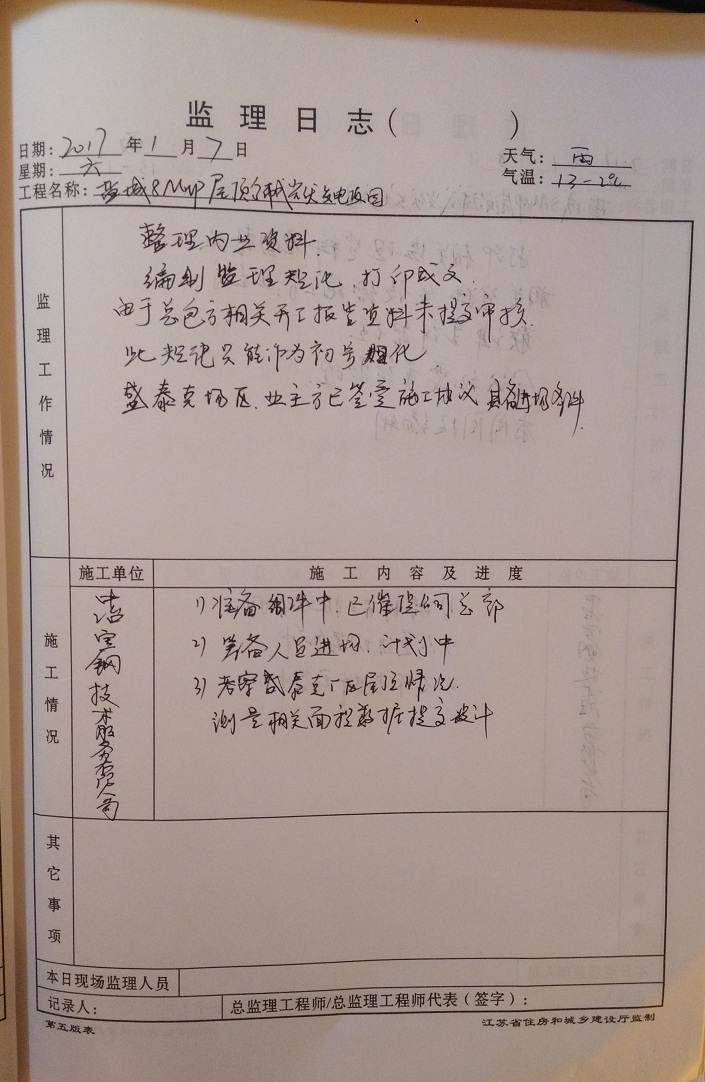 监理日志( )
日期:2017年1月7日
天气:雨
星期:六
气温:13-2℃
工程名称:盐城8MWp屋顶分布式光伏发电项目
监理工作情况
整理内业资料.
编制监理规化 打印成文.
由于总包方相关开工报告资料未提交审核.
此规化只能作为初步规化
盛泰克场区.业主方已签定施工协议 具备进场条件.
施工情况
施工单位
施工内容及进度
中冶宝钢技术服务有限公司
1) 准备组件中.已催促公司总部
2) 筹备人员进场.计划中
3) 考察盛泰克厂区屋顶情况.
测量相关面积数据提交设计
其它事项
本日现场监理人员
记录人:
总监理工程师/总监理工程师代表(签字):
第五版表
江苏省住房和城乡建设厅监制